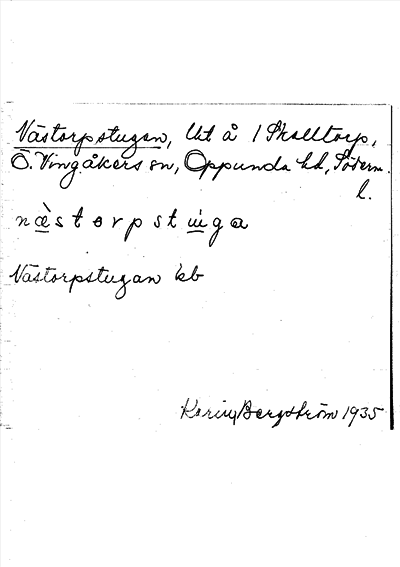 Västorpstugan, Ut å 1 Skalltorp,
Ö. Vingåkers sn, Oppunda hd, Söderm.
l.
næ̀storpstu̇ga
Västorpstugan kb
Karin Bergström 1935